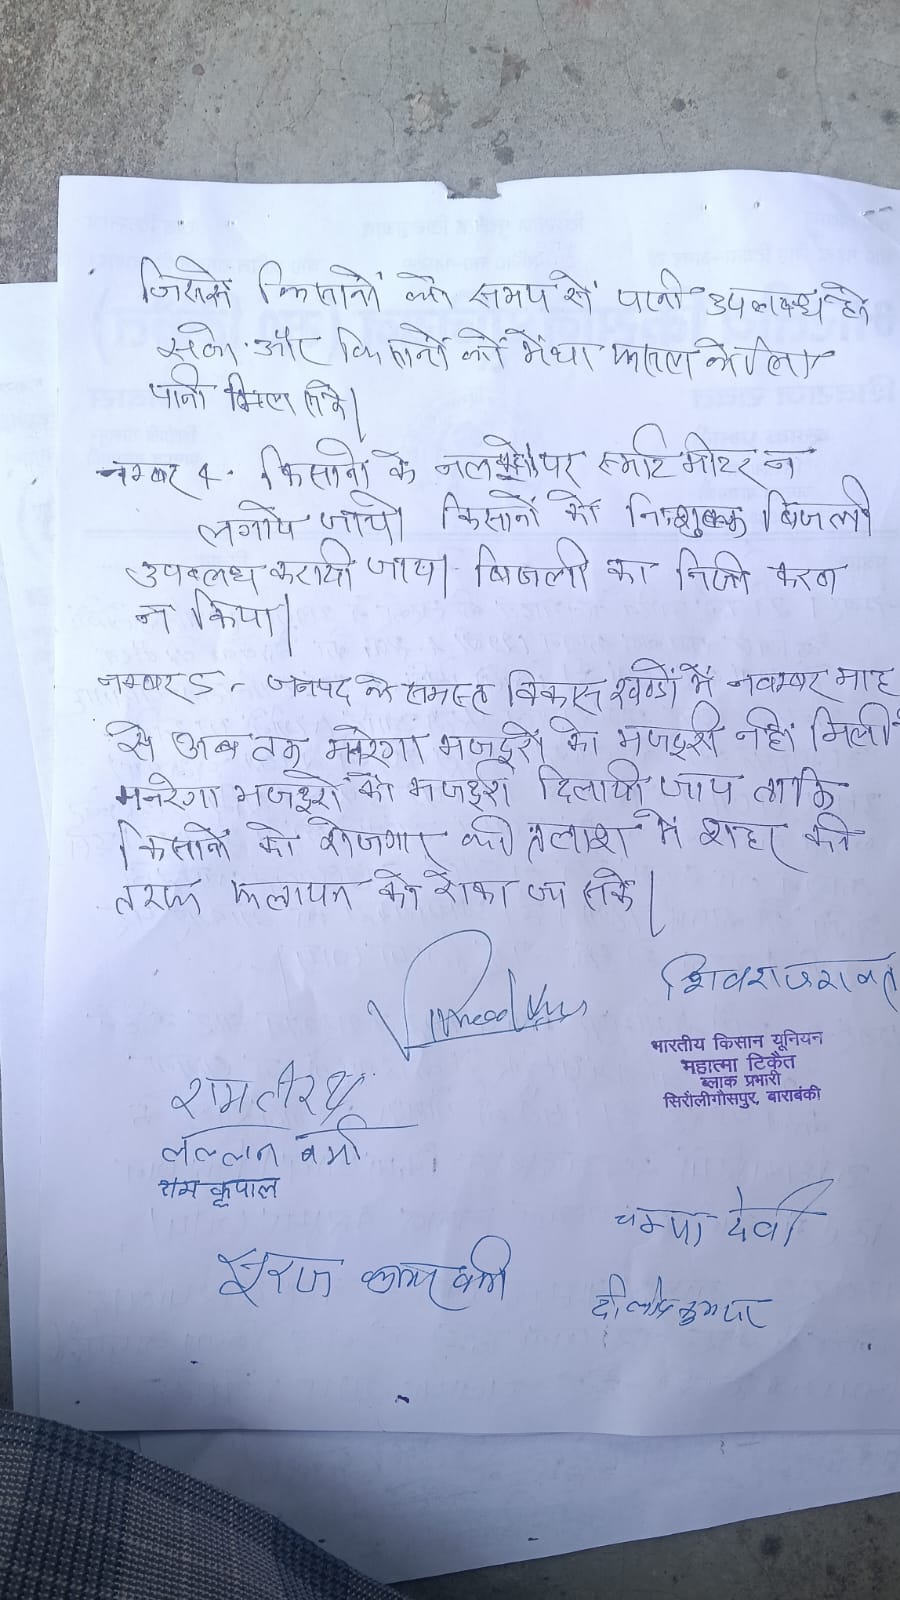 जिससे किसानों को समय से पानी उपलब्ध हो
सके. और किसानों को मेंथा फसल के लिए
पानी मिल सके।
नम्बर 4. किसानों के नलकूपों पर स्मार्ट मीटर न
लगाये जाये। किसानों को निःशुल्क बिजली
उपलब्ध करायी जाय। बिजली का निजी करण
न किया।
नम्बर 5 - जनपद के समस्त विकास खण्डों में नवम्बर माह
से अब तक मनरेगा मजदूरों को मजदूरी नहीं मिली
मनरेगा मजदूरों को मजदूरी दिलायी जाय ताकि
किसानों को रोजगार की तलाश में शहर की
तरफ फलायन को रोका जा सके।
शिवराज रावत
भारतीय किसान यूनियन
महात्मा टिकैत
ब्लाक प्रभारी
सिरौलीगौसपुर, बाराबंकी
राम तीरथ
लल्लान वर्मा
राम कृपाल
चम्पा देवी
सूरज वर्मा
कुमार